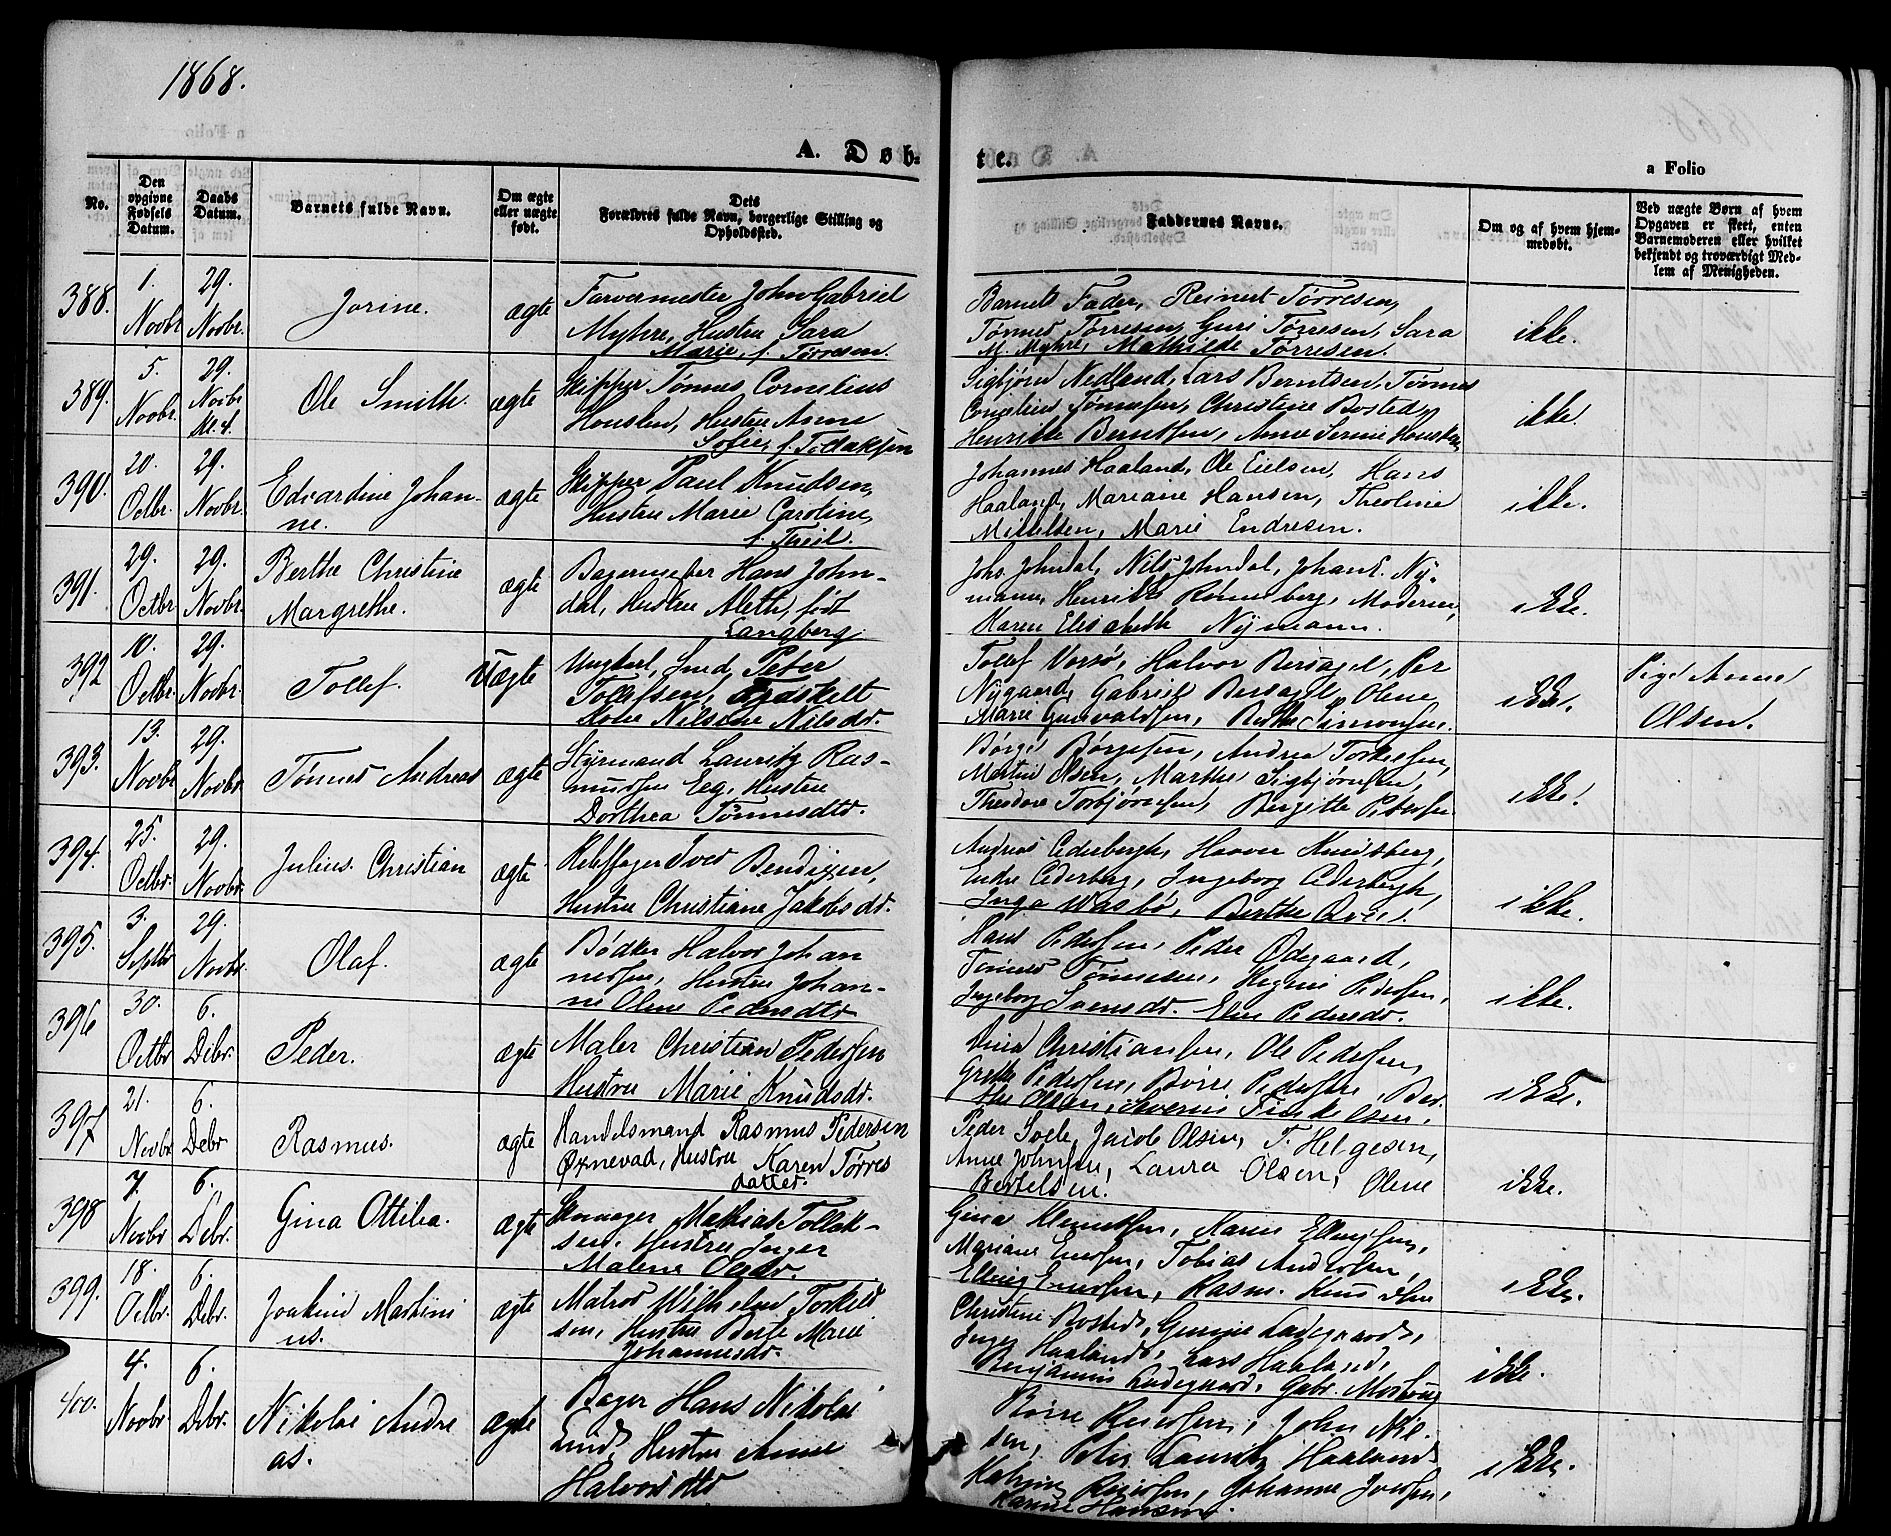 1868.
A. Døb-
te.
a Folio
No.
Den opgivne Fødsels Datum.
Daabs Datum.
Barnets fulde Navn.
Om ægte eller uægte født.
Dets Forældres fulde Navn, borgerlige Stilling og Opholdssted.
Faddernes Navne.
Om og af hvem hjemmedøbt.
Ved uægte Børn af hvem Opgaven er skeet, enten Barnemoderen eller hvilket bekjendt og troværdigt Medlem af Menigheden.
388. 1. Novbr. 29. Novbr. Jorine. ægte
Farvermester John Gabriel
Myhre, Hustru Sara
Marie, f. Tørresen.
Barnets Fader, Reinert Tørresen,
Tønnes Tørresen, Guri Tørresen, Sara
M. Myhre, Mathilde Tørresen.
ikke.
389. 5. Novbr. 29. Novbr. Ole Smith. ægte
Skipper Tønnes Cornelius
Housken, Hustru Anne
Sofie, f.
Sigbjørn Nedland, Lars Berntsen, Tønnes
Cornelius Tønnesen, Christine Bosted,
Henrikke Berntsen, Anne Serine Housken
ikke.
390. 20. Octbr. 29. Novbr. Edvardine Johan-
ne. ægte
Skipper Paul Knudsen,
Hustru Marie Caroline,
f. Thiel.
Johannes Haaland, Ole Eielsen, Hans
Haaland, Mariane Hansen, Theoline
Mikkelsen, Marie Endresen.
ikke.
391. 29. Octbr. 29. Novbr. Berthe Christine
Margrethe. ægte
Bagermester Hans John-
dal, Hustru Aleth, født
Langberg.
Johs. Johndal, Nils Johndal, Johan E. Ny-
mann, Henrikke Rønneberg, Moderen,
Karen Elisabeth Nymann.
ikke.
392 10. Octbr. 29. Novbr. Tollef. Uægte
Ungkarl, Smed Peter
Tollefsen, Fraskilt
Kone Nilsine Nilsdr.
Tollef Vorsø, Halvor Bersagel, Per
Nygaard, Gabriel Bersagel, Olene
Marie Gunvaldsen, Berthe Simonsen.
ikke.
Pige Anne
Olsen.
393. 13. Novbr. 29. Novbr. Tønnes Andreas ægte
Styrmand Lauritz Ras-
mussen Eeg, Hustru
Dorthea Tønnesdtr.
Børge Børgesen, Andrea Torkelsen,
Martin Olsen, Marthe Sigbjørnsen,
Theodore Torbjørnsen, Bergitte Petersen
ikke.
394. 25. Octbr. 29. Novbr. Julius Christian ægte
Rebslager Bendixen,
Hustru Christiane Jakobsdr.
Andreas Cederbergh, Haaver Knudsberg,
Endre Cederberg, Ingeborg Cederbergh,
Inga Wasbø, Berthe
ikke.
395. 3. Septbr. 29. Novbr. Olaf. ægte
Bødker Halvor Johan
nesen, Hustru Johan-
ne Oline Pedersdtr
Hans Pedersen, Peder Ødegaard,
Tønnes Tønnesen, Regine Pedersen,
Ingeborg Svensdr. Elen Pedersdr.
ikke.
396 30. Octbr. 6. Debr. Peder. ægte
Maler Christian Pedersen
Hustru Marie Knudsdr.
Dina Christiansen, Ole Pedersen,
Grethe Pedersen, Børre Pedersen, Ber-
the Olsen, Severine Olsen.
ikke.
397 21. Novbr. 6. Debr Rasmus. ægte
Handelsmand Rasmus Pedersen
Øxnevad, Hustru Karen Tørres
datter.
Peder Soele, Jacob Olsen, T. Helgesen,
Anne Johnsen, Laura Olsen, Olene
Bertelsen.
ikke.
398 7. Novbr 6. Debr. Gina Ottilia. ægte
Skomager Mathias Tollak-
sen, Hustru Inger
Malene Olsdr.
Gina Klemetsen, Karen Ellingsen,
Mariane Enersen, Tobias Andersen,
Elling Enersen, Rasm. Knudsen
ikke.
399. 18. Octbr. 6. Debr. Joakim Martini
us. ægte
Matros Wilhelm Torkild
sen, Hustru Berte Marie
Johannesdr.
Christine Bosted, Gurine Ladegaard,
Inger Haaland, Lars Haaland,
Benjamin Ladegaard, Gabr.
ikke.
400. 4. Novbr. 6. Debr. Nikolai Andre
as. ægte
Bager Hans Nikolai
Lund, Hustru Anne
Halvorsdtr
Børre Reiersen, John Nil-
sen, Peter Lauritz Haaland
Katrine Reiersen, Johanne Iversen,
Karine Hansen.
ikke.